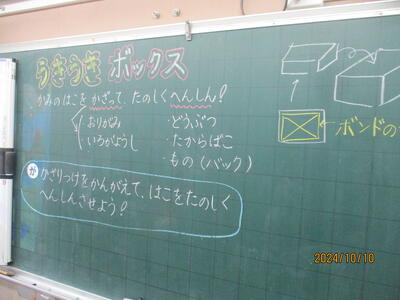 うきうきボックス
かみのはこをかざって、たのしくへんしん!
・おりがみ
・いろがようし
・どうぶつ
・たからばこ
・もの(バック)
か かざりつけをかんがえて、はこをたのしく
へんしんさせよう!
ボンドの
2024/10/10